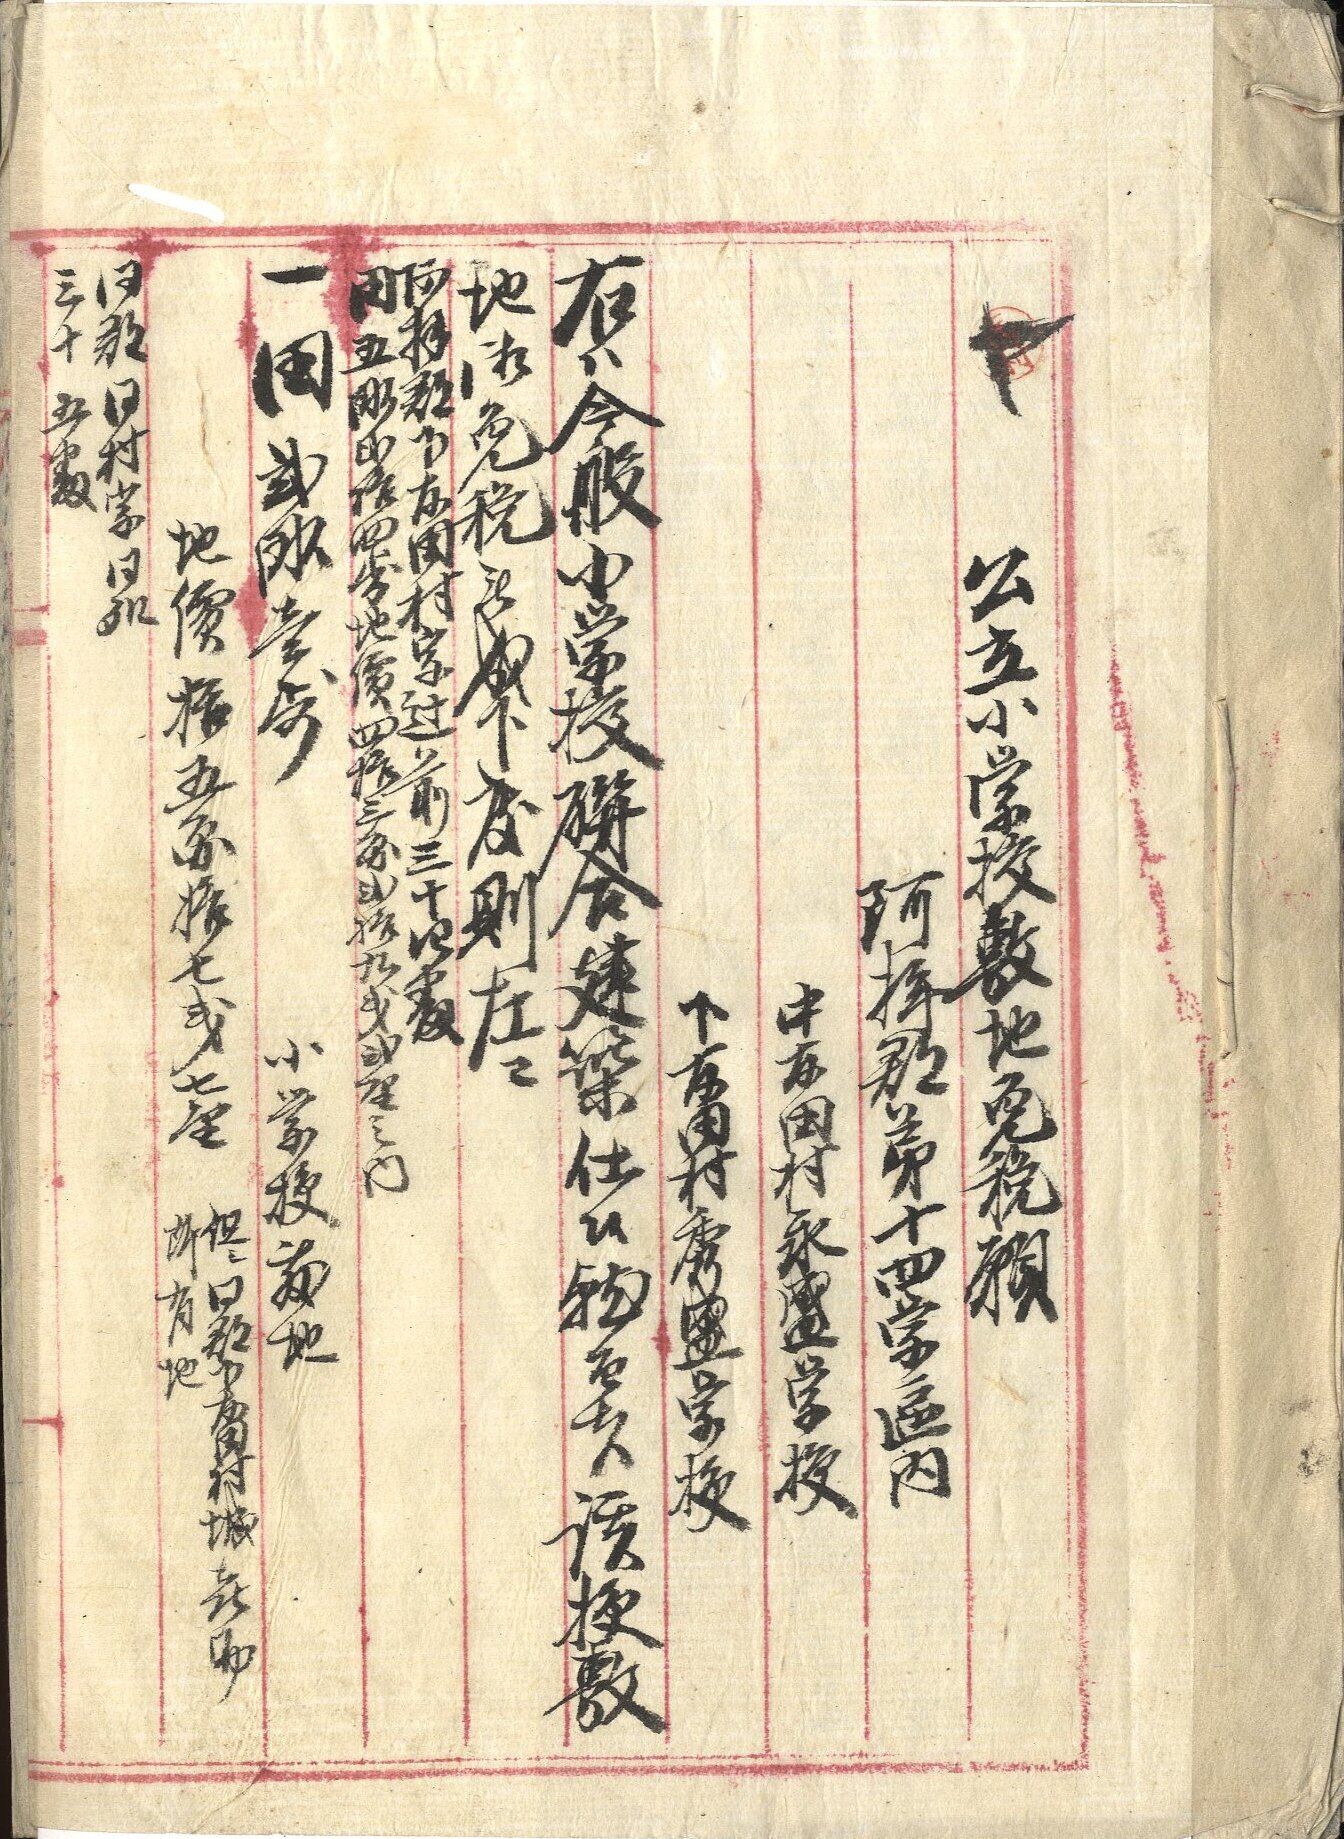 公立小学校敷地免税願
阿拝郡第十四学区内
中友田村永盛学校
下友田村秀盛学校
右ハ今般小学校聯合建築仕候該校敷
地御免税成下度則左ニ
阿拝郡下友田村字辻前三十四番
田五畝拾四歩地價四拾三円弐拾九銭弐厘之内
一田弐畝壱歩
小学校敷地
地價拾五円拾七銭七厘
但シ同郡下友田村城喜助
所有地
同郡同村字同所
三十五番